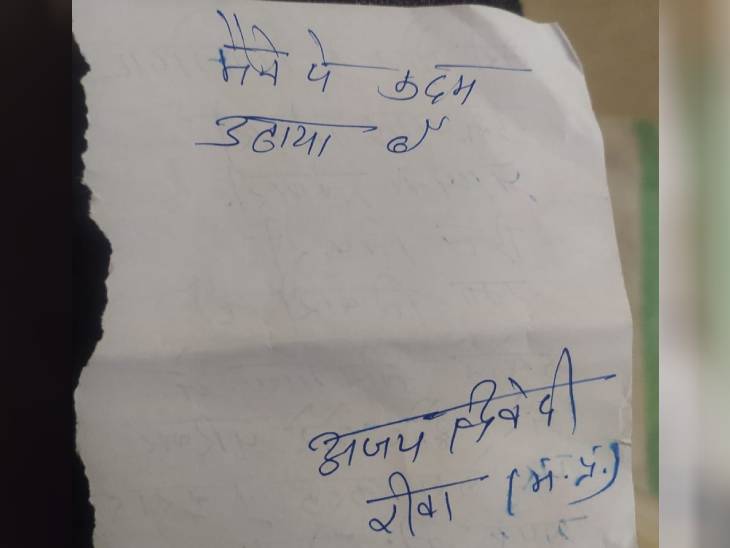 मैने ये कदम
उठाया है
अजय द्विवेदी
रीवा (म.प्र.)